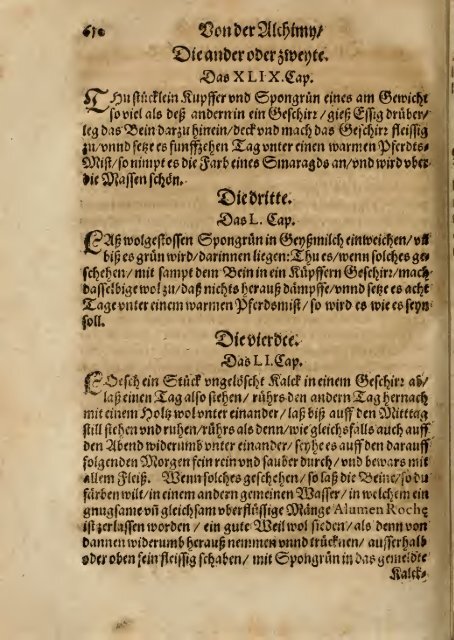 610 Von der Alchimy/
Die ander oder zweyte.
Das XLIX. Cap.
THu stücklein Kupffer vnd Spongrün eines am Gewicht
so viel als deß andern in ein Geschirr/ gieß Essig drüber/
leg das Bein darzu hinein/ deck vnd mach das Geschirr fleissig
zu/ vnnd setze es funffzehen Tag vnter einen warmen Pferdts-
Mist/ so nimpt es die Farb eines Smaragds an/ vnd wird vber
die Massen schön.
Die dritte.
Das L. Cap.
LAß wolgestossen Spongrün in Geyßmilch einweichen/ vñ
biß es grün wird/ darinnen liegen: Thu es/ wenn solches ge-
schehen/ mit sampt dem Bein in ein Küpffern Geschirr/ mach
dasselbige wol zu/ daß nichts herauß dämpffe/ vnnd setze es acht
Tage vnter einem warmen Pferdsmist/ so wird es wie es seyn
soll.
Die vierdte.
Das LI. Cap.
LEsch ein Stück vngelöscht Kalck in einem Geschirr ab/
laß einen Tag also stehen/ rührs den andern Tag hernach
mit einem Holtz wol vnter einander/ laß biß auff den Mitttag
still stehen vnd ruhen/ rührs als denn/ wie gleichsfalls auch auff
den Abend widerumb vnter einander/ seyhe es auff den darauff
folgenden Morgen fein rein vnd sauber durch/ vnd bewars mit
allem Fleiß. Wenn solches geschehen/ so laß die Beine/ so du
färben wilt/ in einem andern gemeinen Wasser/ in welchem ein
gnugsame vñ gleichsam vberflüssige Mänge Alumen Roche
ist zerlassen worden/ ein gute Weil wol sieden/ als denn von
dannen widerumb herauß nemmen vnnd trücknen/ ausserhalb
oder oben fein fleissig schaben/ mit Spongrün in das gemeldte
Kalck-